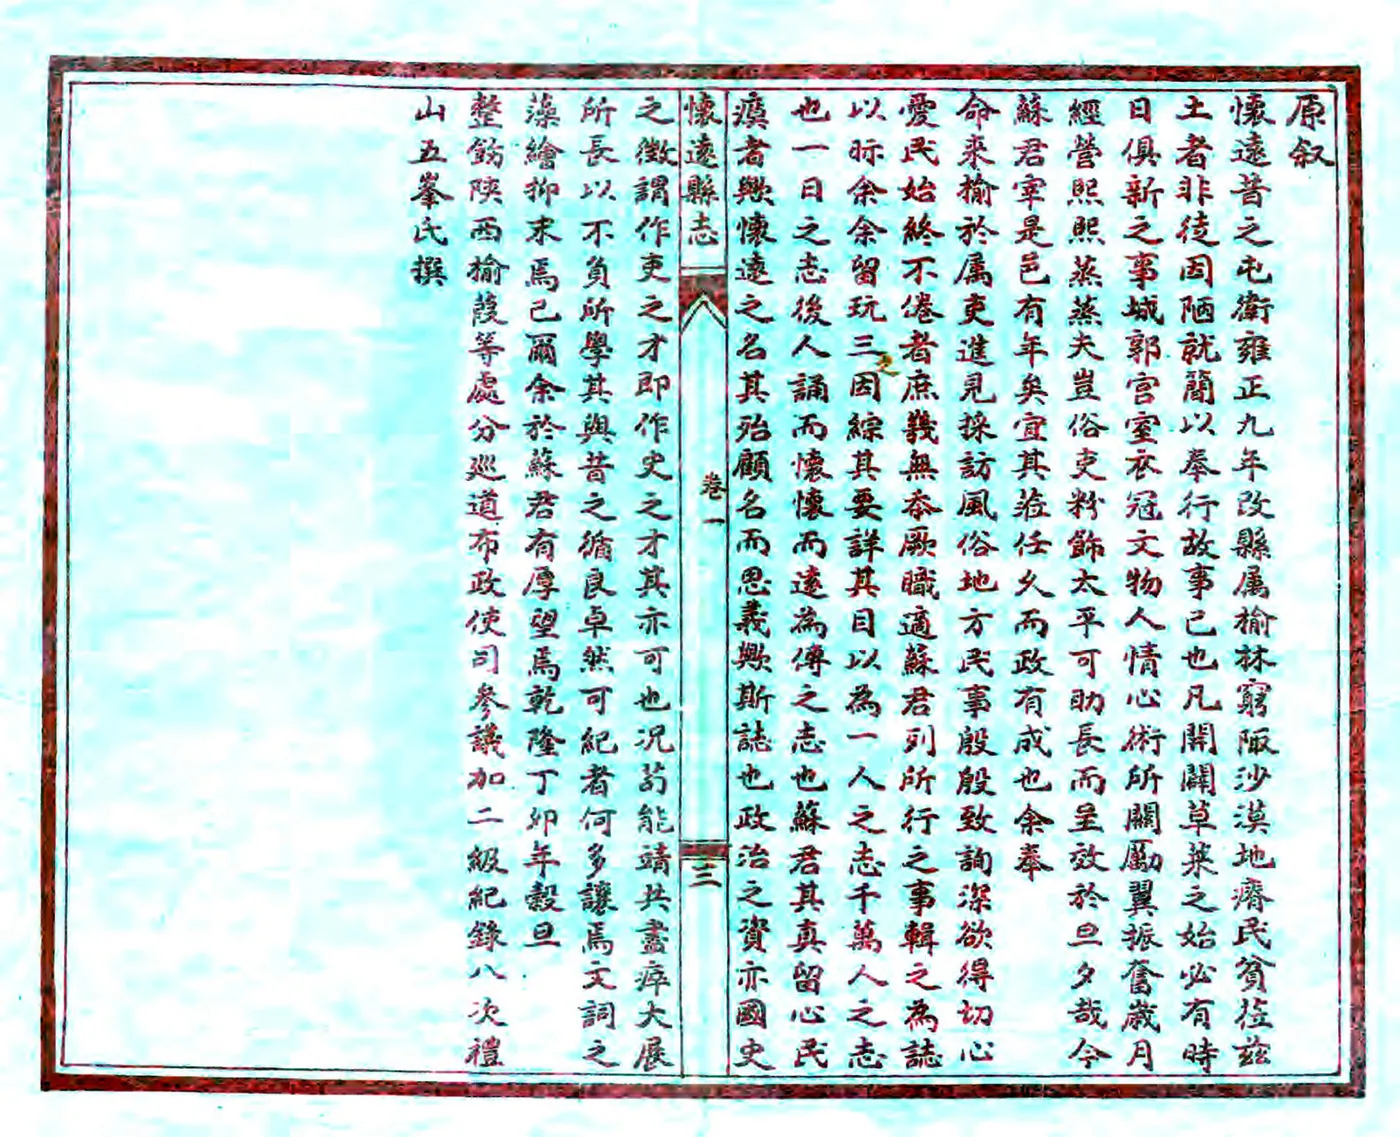 原叙
懷遠昔之屯衛雍正九年改縣属榆林窮陬沙漠地瘠民貧莅兹
土者非徒因陋就簡以奉行故事已也凡開闢草萊之始必有時
日俱新之事城郭宫室衣冠文物人情心術所關勵翼振奮歲月
經營熙熙蒸蒸夫豈俗吏粉飾太平可助長而呈效於旦夕哉今
蘇君宰是邑有年矣宜其莅任久而政有成也余奉
命来榆於属吏進見採訪風俗地方民事殷殷致詢深欲得切心
愛民始終不倦者庶幾無忝厥職適蘇君列所行之事輯之為誌
以际余余留玩三之因綜其要詳其目以為一人之志千萬人之志
也一日之志後人誦而懷懷而遠為傳之志也蘇君其真留心民
瘼者歟懷遠之名其殆顧名而思義歟斯誌也政治之資亦國史
懷遠縣志
卷一
三
之徵謂作吏之才即作史之才其亦可也况苟能靖共盡瘁大展
所長以不負所學其與昔之循良卓然可紀者何多讓焉文詞之
藻繪抑末焉已爾余於蘇君有厚望焉乾隆丁卯年穀旦
整飭陕西榆葭等處分巡道布政使司參議加二級紀錄八次禮
山五峯氏撰